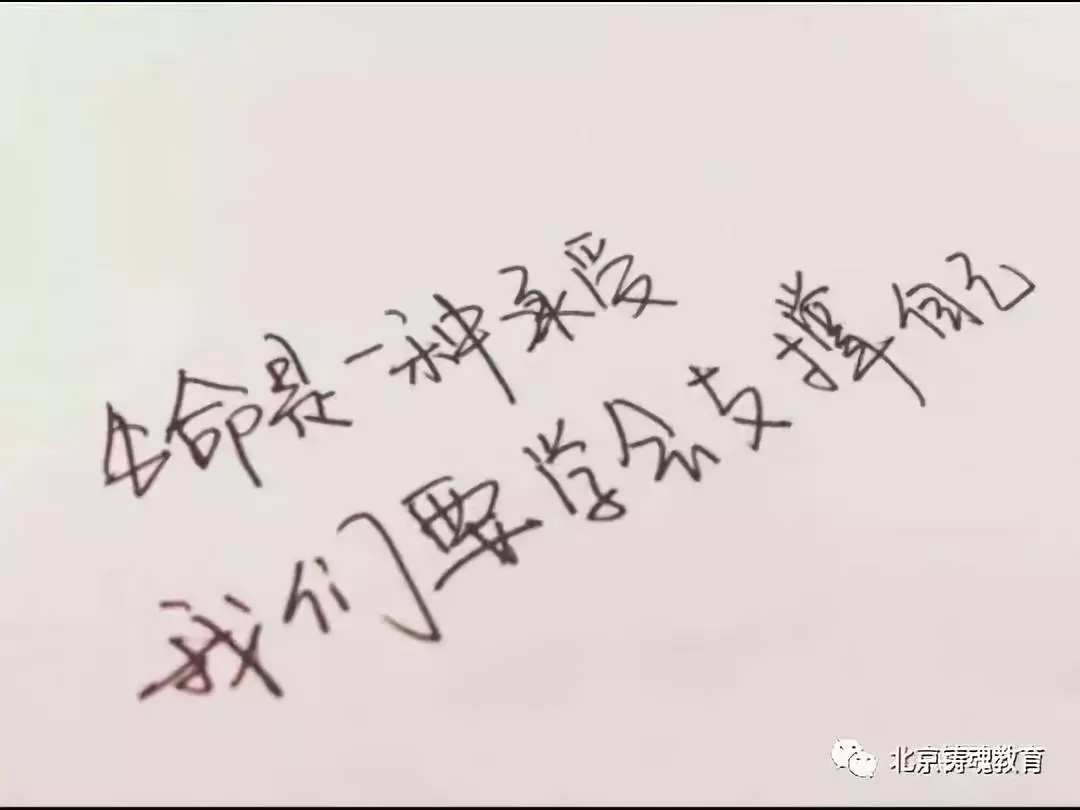 生命是一种承受
我们要学会支撑自己
北京铸魂教育